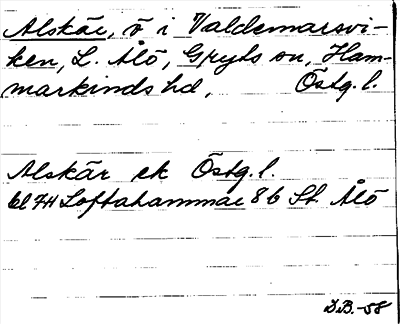 Alskär, ö i Valdemarsvi-
ken, L. Ålö, Gryts sn, Ham-
markinds hd, Östg. l.
Alskär ek Östg. l.
bl 7H Loftahammar 8b St. Ålö
D.B. -58